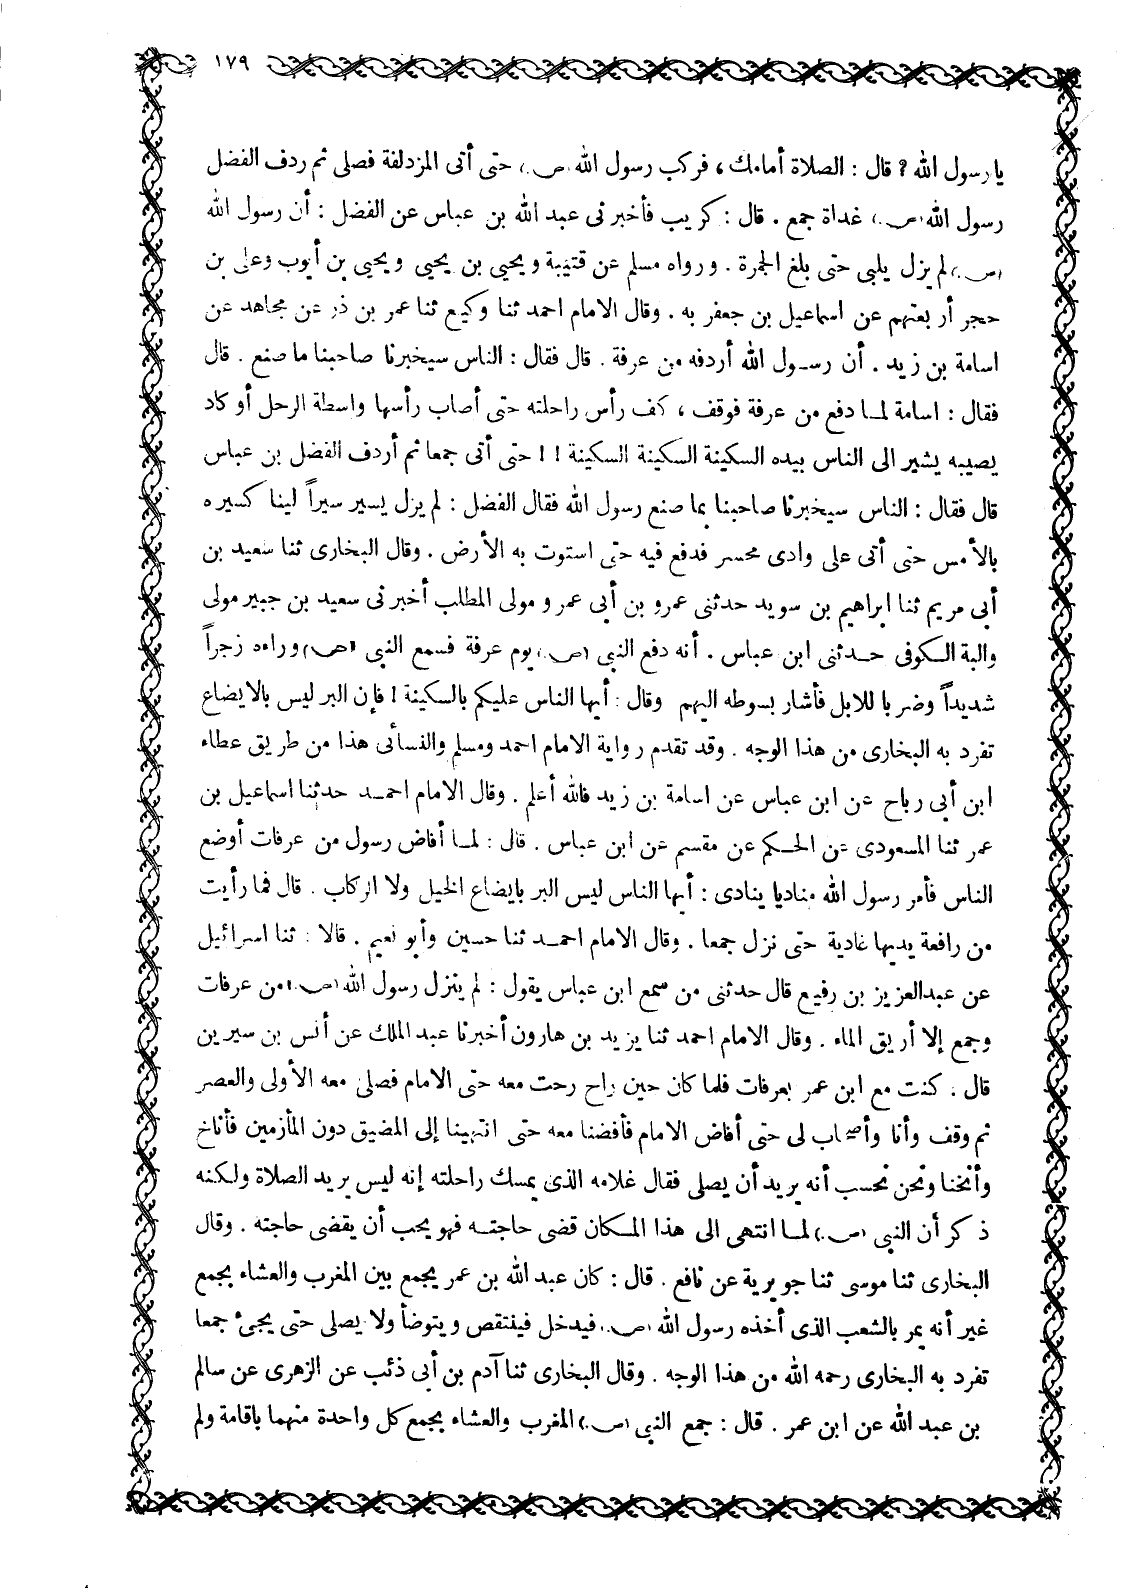 ١٧٩
يا رسول الله ? قال : الصلاة أمامك ، فركب رسول الله (ص.) حتى أتى المزدلفة فصلى ثم ردف الفضل
رسول الله (ص.) غداة جمع . قال : كريب فأخبرنى عبد الله بن عباس عن الفضل : أن رسول الله
(ص.) لم يزل يلبى حتى بلغ الجمرة . ورواه مسلم عن قتيبة ويحيى بن يحيى ويحيى بن أيوب وعلى بن
حجر أربعتهم عن اسماعيل بن جعفر به . وقال الامام احمد ثنا وكيع ثنا عمر بن ذر عن مجاهد عن
اسامة بن زيد . أن رسول الله أردفه من عرفة . قال فقال : الناس سيخبرنا صاحبنا ما صنع . قال
فقال : اسامة لما دفع من عرفة فوقف ، كف رأس راحلته حتى أصاب رأسها واسطة الرحل أو كاد
يصيبه يشير الى الناس بيده السكينة السكينة السكينة ! ! حتى أتى جمعا ثم أردف الفضل بن عباس
قال فقال : الناس سيخبرنا صاحبنا بما صنع رسول الله فقال الفضل : لم يزل يسير سيراً لينا كسيره
بالأمس حتى أتى على وادى محسر فدفع فيه حتى استوت به الأرض . وقال البخارى ثنا سعيد بن
أبى مريم ثنا ابراهيم بن سويد حدثنى عمرو بن أبى عمرو مولى المطلب أخبرنى سعيد بن جبير مولى
والبة الكوفى حدثنى ابن عباس . أنه دفع النبى (ص.) يوم عرفة فسمع النبى (ص.) وراءه زجراً
شديداً وضربا للابل فأشار بسوطه اليهم وقال : أيها الناس عليكم بالسكينة ! فإن البر ليس بالايضاع
تفرد به البخارى من هذا الوجه . وقد تقدم رواية الامام احمد ومسلم والنسائى هذا من طريق عطاء
ابن أبى رباح عن ابن عباس عن اسامة بن زيد فالله أعلم . وقال الامام احمد حدثنا اسماعيل بن
عمر ثنا المسعودى عن الحكم عن مقسم عن ابن عباس . قال : لما أفاض رسول من عرفات أوضع
الناس فأمر رسول الله مناديا ينادى : أيها الناس ليس البر بايضاع الخيل ولا الركاب . قال فما رأيت
من رافعة يديها غادية حتى نزل جمعا . وقال الامام احمد ثنا حسين وأبو نعيم . قالا : ثنا اسرائيل
عن عبدالعزيز بن رفيع قال حدثنى من سمع ابن عباس يقول : لم ينزل رسول الله (ص.) من عرفات
وجمع إلا أريق الماء . وقال الامام احمد ثنا يزيد بن هارون أخبرنا عبد الملك عن أنس بن سيرين
قال . كنت مع ابن عمر بعرفات فلما كان حين راح رحت معه حتى الامام فصلى معه الأولى والعصر
ثم وقف وأنا وأصحاب لى حتى أفاض الامام فأفضنا معه حتى انتهينا إلى المضيق دون المأزمين فأناخ
وأنخنا ونحن نحسب أنه يريد أن يصلى فقال غلامه الذى يمسك راحلته إنه ليس يريد الصلاة ولكنه
ذكر أن النبى (ص.) لما انتهى الى هذا المكان قضى حاجته فهو يحب أن يقضى حاجته . وقال
البخارى ثنا موسى ثنا جويرية عن نافع . قال : كان عبد الله بن عمر يجمع بين المغرب والعشاء بجمع
غير أنه يمر بالشعب الذى أخذه رسول الله (ص.) فيدخل فينتقص ويتوضأ ولا يصلى حتى يجىء جمعا
تفرد به البخارى رحمه الله من هذا الوجه . وقال البخارى ثنا آدم بن أبى ذئب عن الزهرى عن سالم
بن عبد الله عن ابن عمر . قال : جمع النبى (ص.) المغرب والعشاء بجمع كل واحدة منهما باقامة ولم